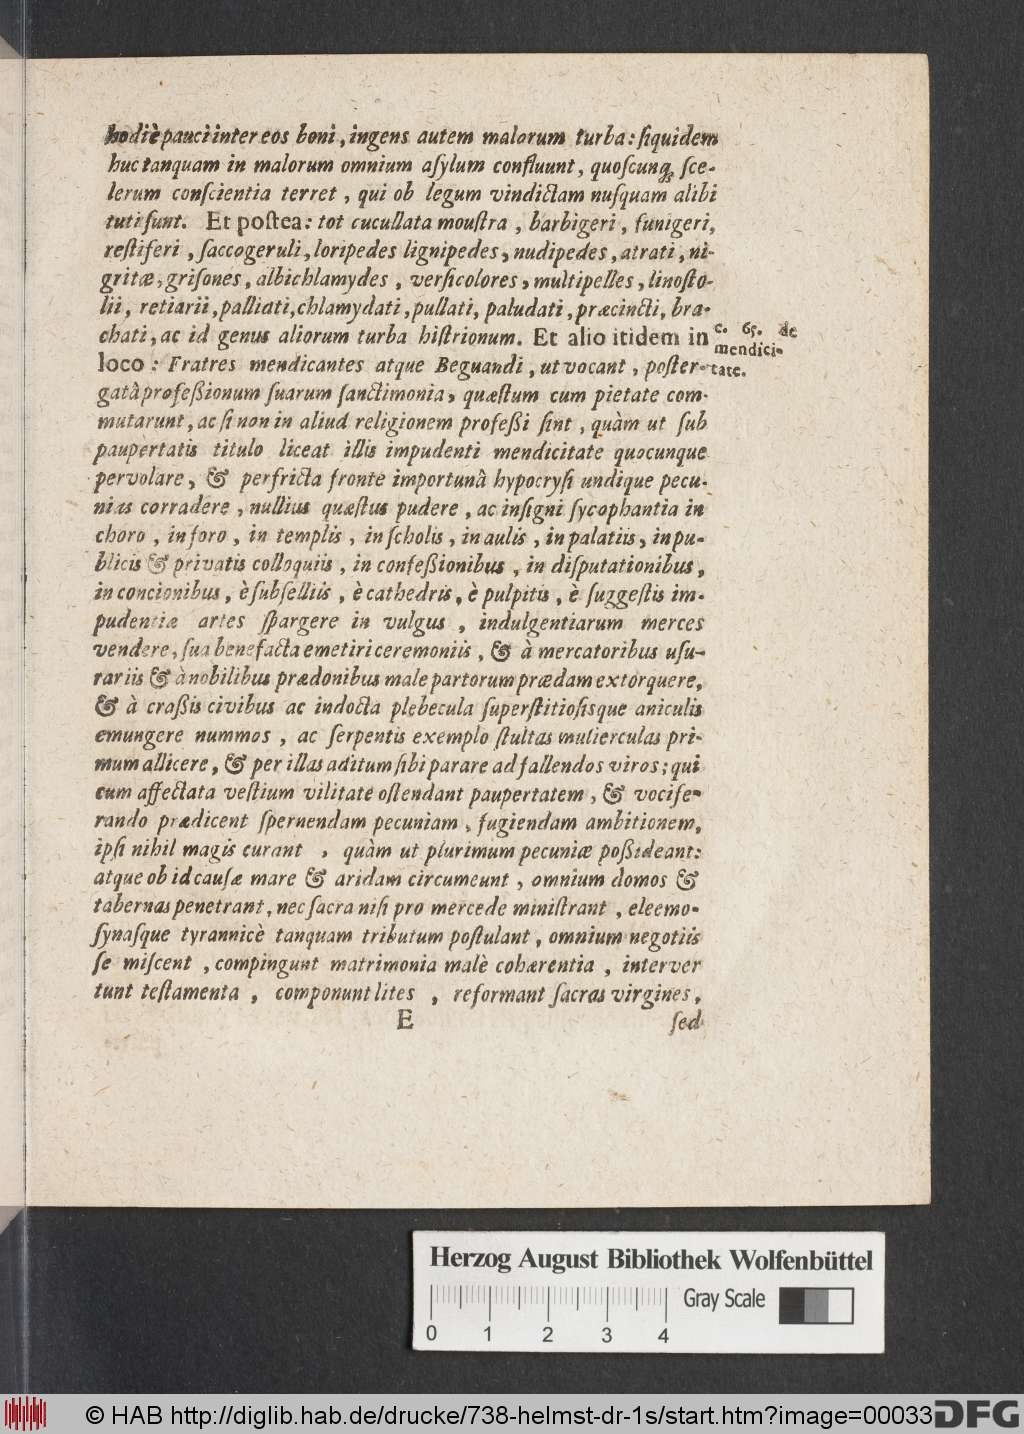 hodiè pauci inter eos boni, ingens autem malorum turba: ſiquidem
huc tanquam in malorum omnium aſylum confluunt, quoſcunq; ſce-
lerum conſcientia terret, qui ob legum vindictam nuſquam alibi
tuti ſunt. Et poſtea: tot cucullata mouſtra, barbigeri, funigeri,
reſtiferi, ſaccogeruli, loripedes lignipedes, nudipedes, atrati, ni-
gritæ, griſones, albichlamydes, verſicolores, multipelles, linoſto-
lii, retiarii, palliati, chlamydati, pullati, paludati, præcincti, bra-
chati, ac id genus aliorum turba hiſtrionum. Et alio itidem in
loco: Fratres mendicantes atque Beguandi, ut vocant, poſter-
c. 65. de
mendici-
tate.
gatà profeßionum ſuarum ſanctimonia, quæſtum cum pietate com-
mutarunt, ac ſi non in aliud religionem profeßi ſint, quàm ut ſub
paupertatis titulo liceat illis impudenti mendicitate quocunque
pervolare, & perfricta fronte importunâ hypocryſi undique pecu-
nias corradere, nullius quæſtus pudere, ac inſigni ſycophantia in
choro, in foro, in templis, in ſcholis, in aulis, in palatiis, in pu-
blicis & privatis colloquiis, in confeßionibus, in diſputationibus,
in concionibus, è ſubſelliis, è cathedris, è pulpitis, è ſuggeſtis im-
pudentiæ artes ſpargere in vulgus, indulgentiarum merces
vendere, ſua benefacta emetiri ceremoniis, & à mercatoribus uſu-
rariis & à nobilibus prædonibus male partorum prædam extorquere,
& à craßis civibus ac indocta plebecula ſuperſtitioſisque aniculis
emungere nummos, ac ſerpentis exemplo ſtultas mulierculas pri-
mum allicere, & per illas aditum ſibi parare ad fallendos viros; qui
cum affectata veſtium vilitate oſtendant paupertatem, & vocife-
rando prædicent ſpernendam pecuniam, fugiendam ambitionem,
ipſi nihil magis curant, quàm ut plurimum pecuniæ poßideant:
atque ob id cauſæ mare & aridam circumeunt, omnium domos &
tabernas penetrant, nec ſacra niſi pro mercede miniſtrant, eleemo-
ſynaſque tyrannicè tanquam tributum poſtulant, omnium negotiis
ſe miſcent, compingunt matrimonia malè cohærentia, interver
tunt teſtamenta, componunt lites, reformant ſacras virgines,
E ſed
Herzog August Bibliothek Wolfenbüttel
Gray Scale
0 1 2 3 4
© HAB http://diglib.hab.de/drucke/738-helmst-dr-1s/start.htm?image=00033
DFG